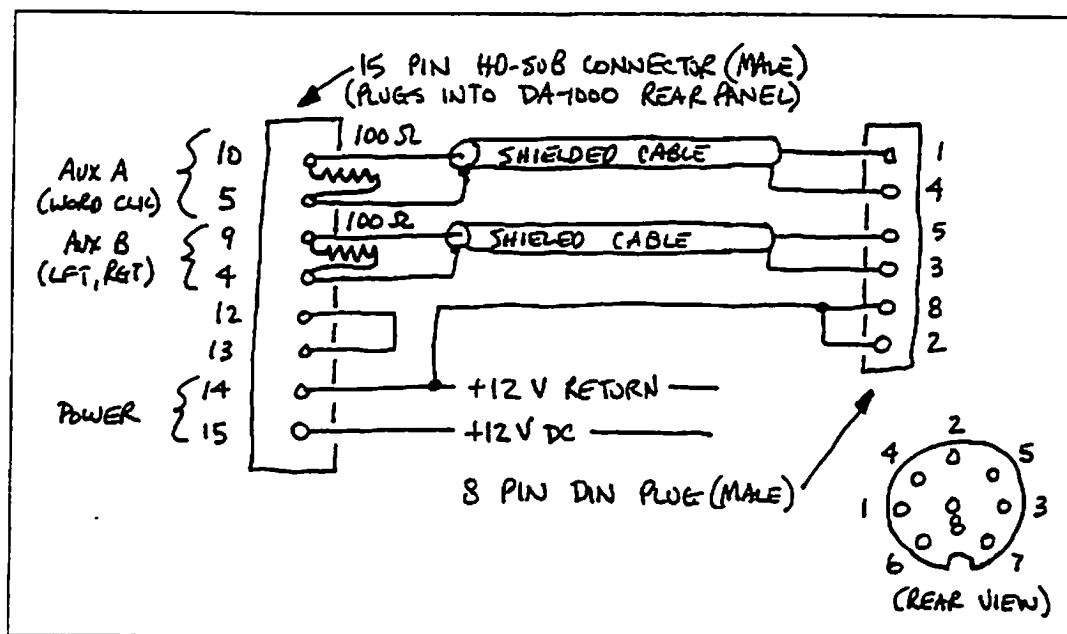 15 PIN HD-SUB CONNECTOR (MALE)
(PLUGS INTO DA-1000 REAR PANEL)
AUX A
(WORD CLK)
10
5
100 Ω
SHIELDED CABLE
1
4
AUX B
(LFT, RGT)
9
4
100 Ω
SHIELED CABLE
5
3
12
13
8
2
POWER
14
15
+12 V RETURN
+12 V DC
8 PIN DIN PLUG (MALE)
2
4
5
1
3
8
6
7
(REAR VIEW)